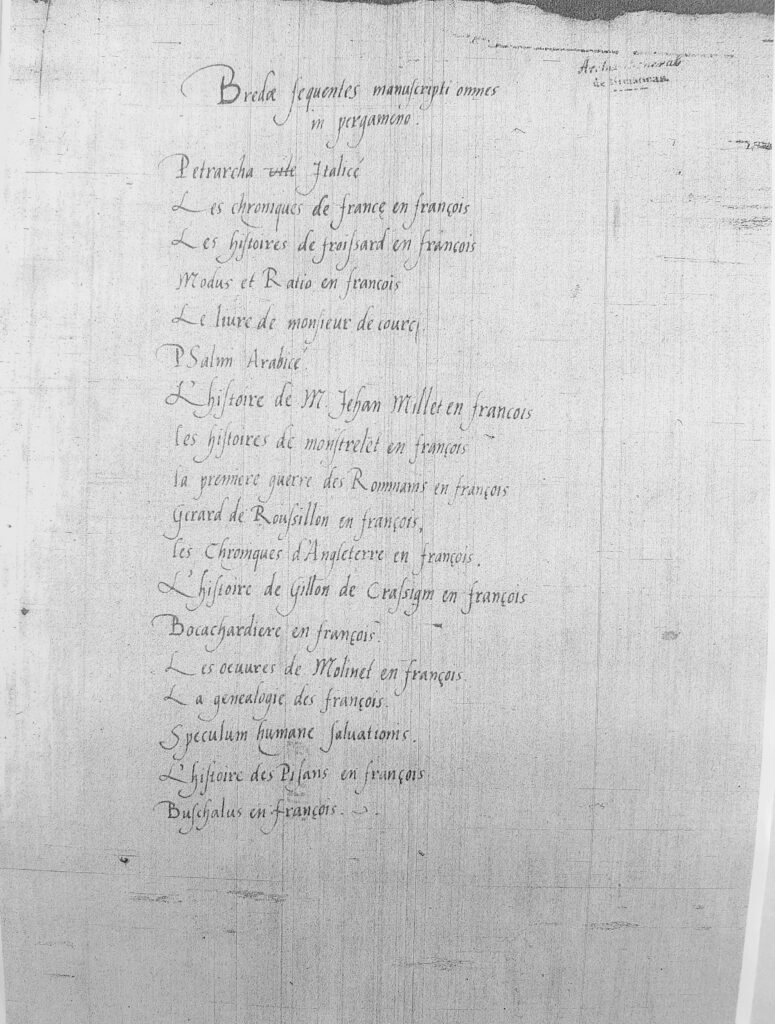 Archivo General
de Simancas
Bredæ sequentes manuscripti omnes
in pergameno.
Petrarcha vite Italicé
Les chroniques de france en françois
Les histoires de froissard en françois
Modus et Ratio en francois
Le liure de monsieur de courcj.
PSalmi Arabicé.
L'histoire de M. Jehan Millet en francois
les histoires de monstrelet en françois
la premiere guerre des Rommains en françois
Gerard de Roussillon en françois,
les Chroniques d'Angleterre en françois.
L'histoire de Gillon de Crassigni en françois
Bocachardiere en françois.
Les oeuures de Molinet en françois.
La genealogie des françois.
Speculum humane saluationis.
L'histoire des Pisans en françois
Buschalus en françois.